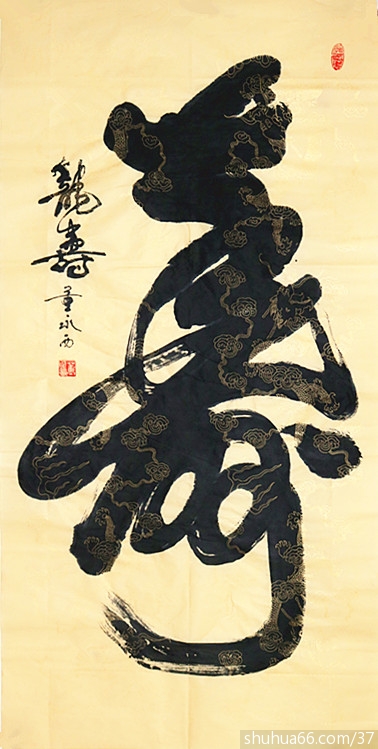 壽
龍壽
董永西
shuhua66.com/37